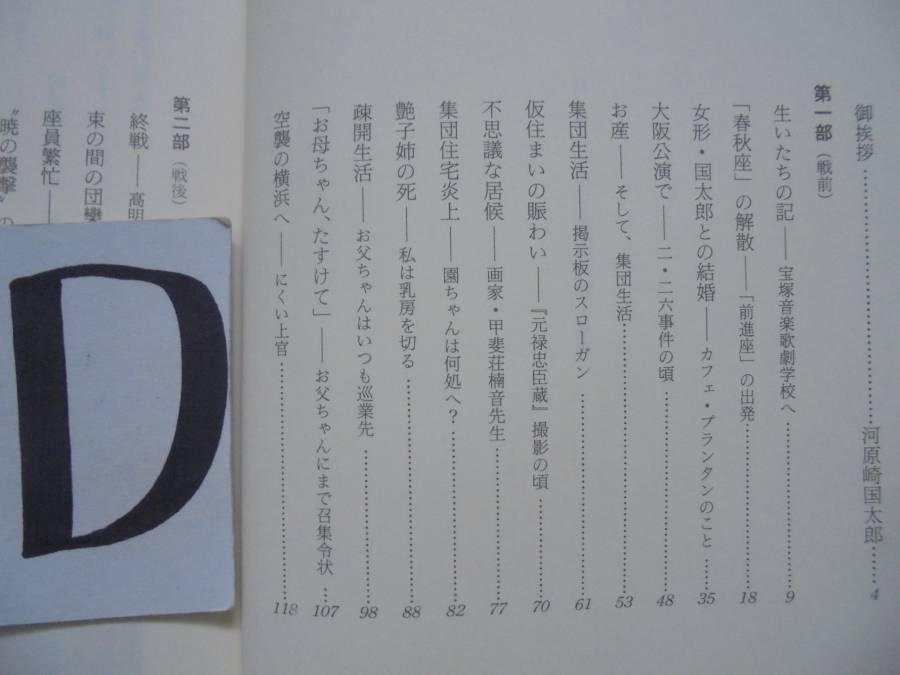 御挨拶……河原崎国太郎……4
第一部（戦前）
生いたちの記――宝塚音楽歌劇学校へ……9
「春秋座」の解散――「前進座」の出発……18
女形・国太郎との結婚――カフェ・プランタンのこと……35
大阪公演で――二・二六事件の頃……48
お産――そして、集団生活……53
集団生活――掲示板のスローガン……61
仮住まいの賑わい――『元禄忠臣蔵』撮影の頃……70
不思議な居候――画家・甲斐荘楠音先生……77
集団住宅炎上――園ちゃんは何処へ？……82
艶子姉の死――私は乳房を切る……88
疎開生活――お父ちゃんはいつも巡業先……98
「お母ちゃん、たすけて」――お父ちゃんにまで召集令状……107
空襲の横浜へ――にくい上官……118
第二部（戦後）
終戦――高明
束の間の団欒
座員繁忙――
"暁の襲撃"の
D